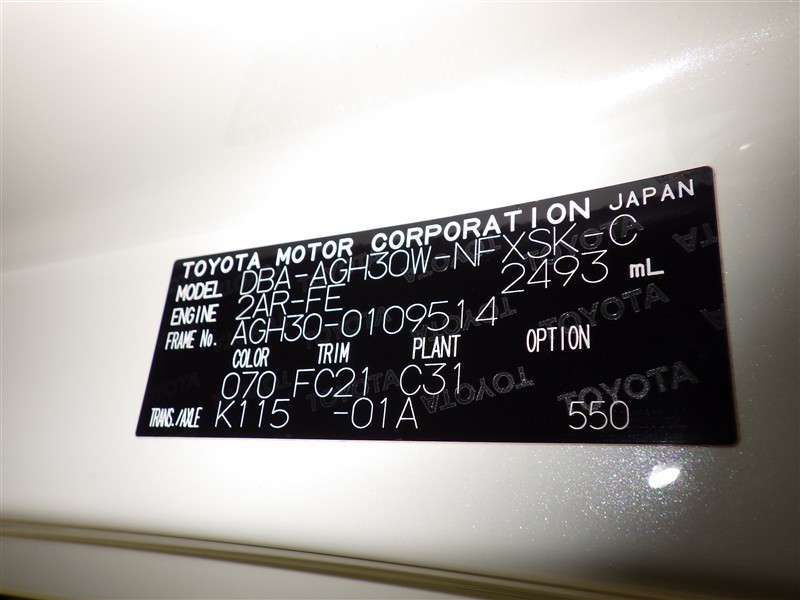 TOYOTA MOTOR CORPORATION JAPAN
MODEL DBA-AGH30W-NFXSK-C
ENGINE 2AR-FE 2493 mL
FRAME No. AGH30-0109514
COLOR TRIM PLANT OPTION
070 FC21 C31
TRANS./AXLE K115 -01A 550